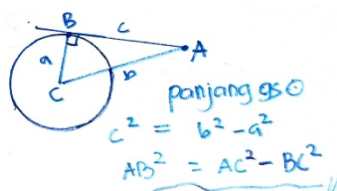 B
c
A
a
b
C
panjang gs ⊙
c² = b² - a²
AB² = AC² - BC²